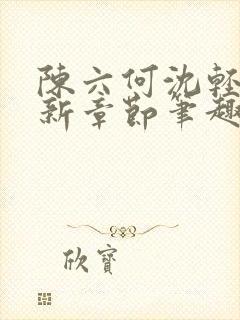 陳六何沈輕
新章節筆趣
欣寶